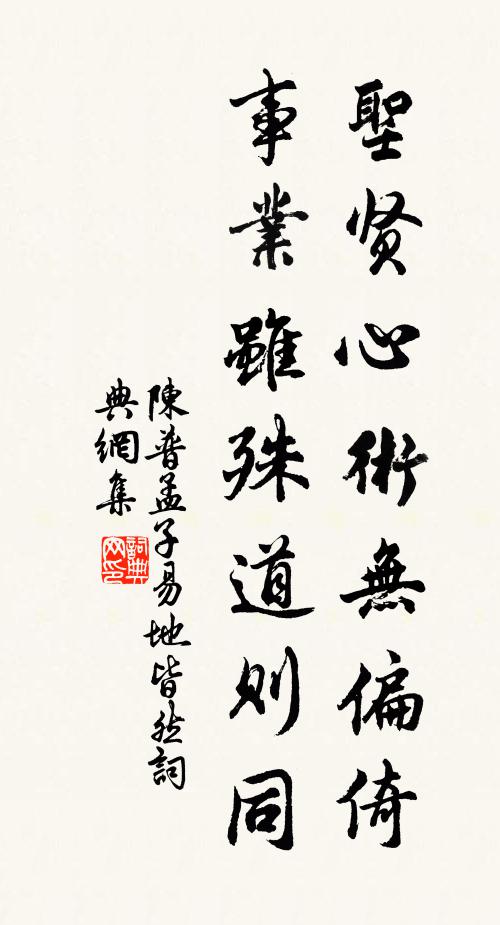 聖贤心術無偏倚
事業雖殊道则同
陳普孟子易地皆然詞
典網集
詞典
网印